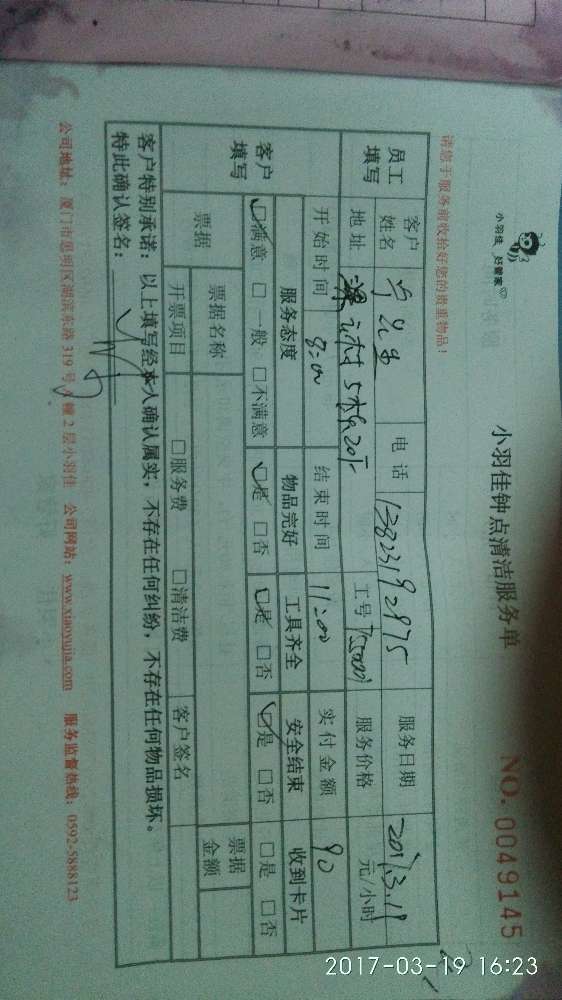 小羽佳 好管家
小羽佳钟点清洁服务单
NO. 0049145
请您于服务前收拾好您的贵重物品!
员工填写
客户姓名 电话 服务日期 2017.3.19
地址 工号 服务价格 元/小时
开始时间 8:00 结束时间 11:00 实付金额 90
客户填写
服务态度 物品完好 工具齐全 安全结束 收到卡片
☑满意 □一般 □不满意 ☑是 □否 ☑是 □否 ☑是 □否 □是 □否
票据 票据名称 票据金额
开票项目 □服务费 □清洁费 客户签名
客户特别承诺:以上填写经本人确认属实,不存在任何纠纷,不存在任何物品损坏。
特此确认签名:
公司地址:厦门市思明区湖滨东路319号 幢2层小羽佳 公司网站:www.xiaoyujia.com 服务监督热线:0592-5888123
2017-03-19 16:23